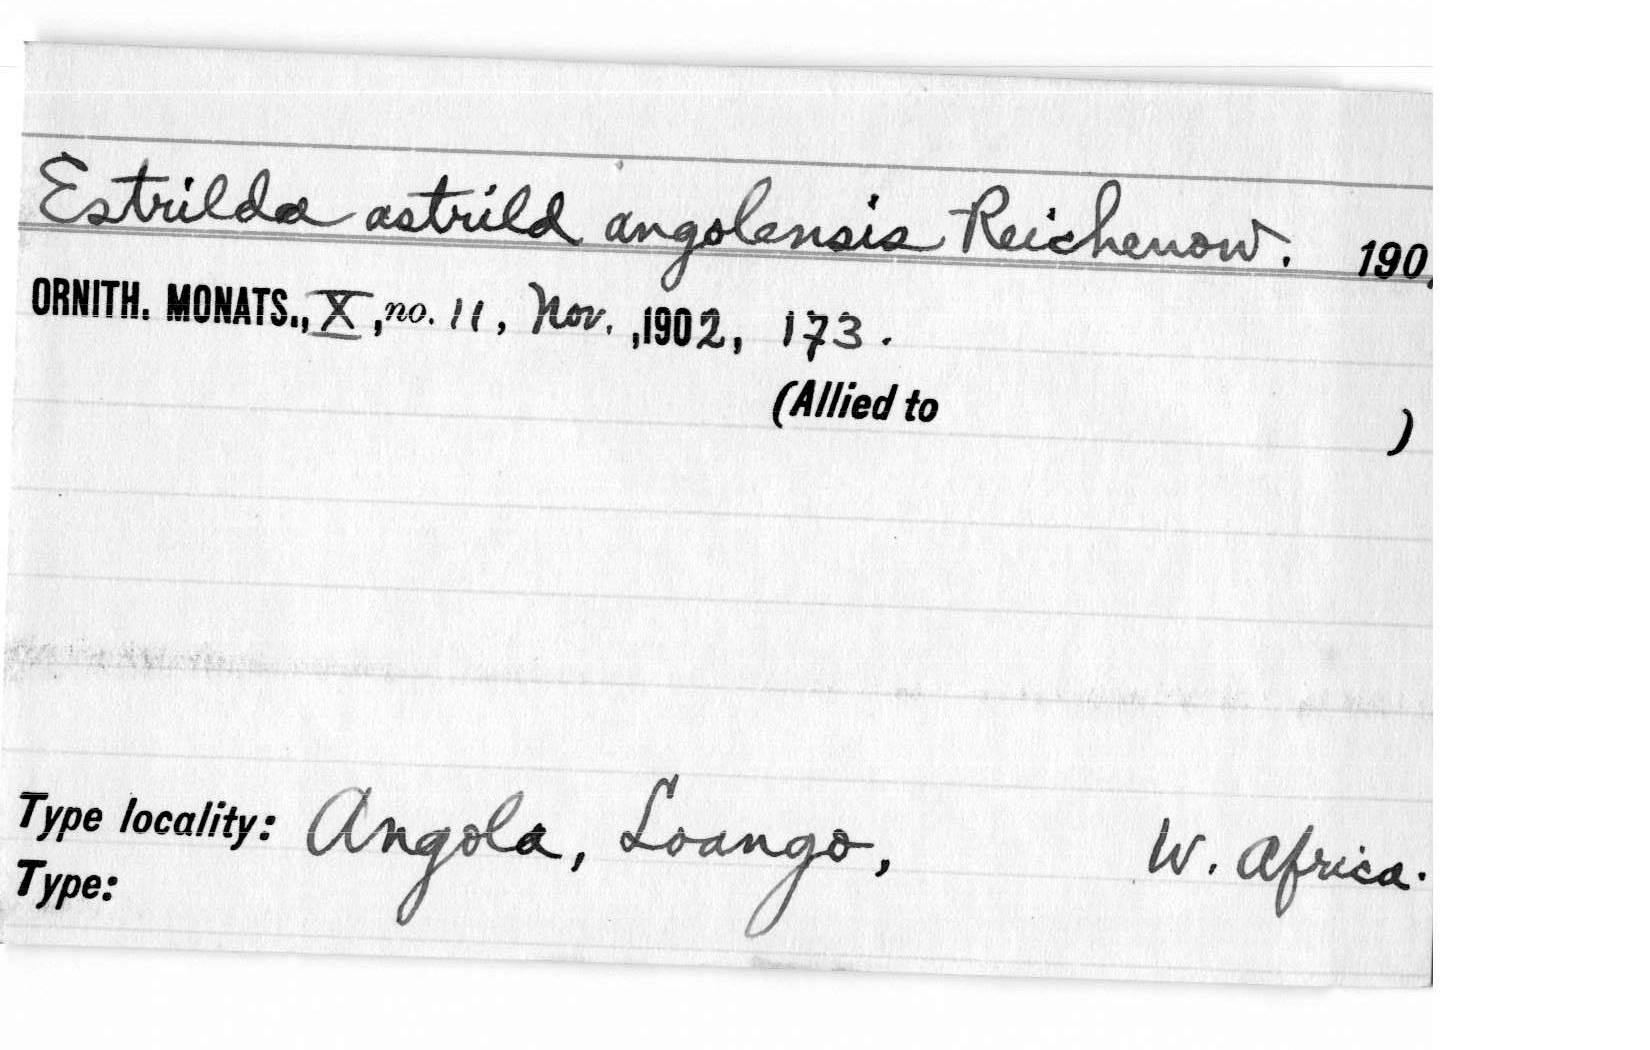 Estrilda astrild angolensis Reichenow. 190
ORNITH. MONATS., X, no. 11, Nov. ,1902, 173.
(Allied to )
Type locality: Angola, Loango, W. Africa.
Type: